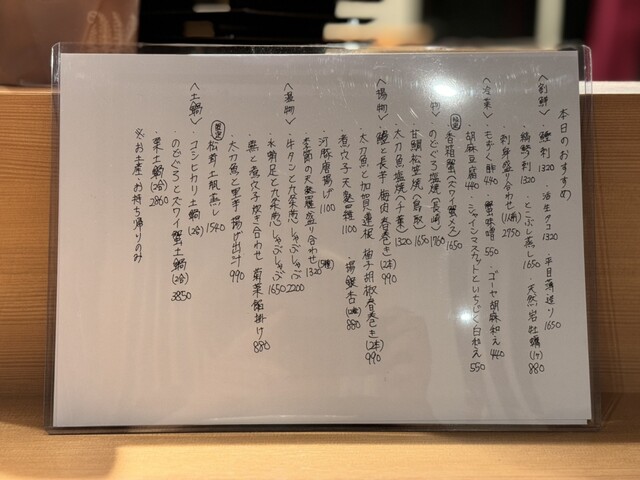 本日のおすすめ
〈刺鮮〉
・鰹刺 1320 ・活生タコ 1320 ・平目薄造り 1650
・縞鯵刺 1320 ・とこぶし蒸し 1650 ・天然岩牡蠣(1ケ) 880
・刺身盛り合わせ(1人前) 2750
〈冷菜〉
・もずく酢 440 ・蟹味噌 550 ・ゴーヤ胡麻和え 440
・胡麻豆腐 440 ・シャインマスカットといちじく白和え 550
香箱蟹(ズワイ蟹メス) 1650
物〉
・のどぐろ塩焼(長崎) 1760
・甘鯛松笠焼(鳥取) 1650
・太刀魚塩焼(千葉) 1320
〈揚物〉
・鱧と長芋 梅肉春巻き(2本) 990
・太刀魚と加賀蓮根 柚子胡椒春巻き(2本) 990
・煮穴子天ぷら 1100 ・揚銀杏 880
・河豚唐揚げ 1100
・季節の天ぷら盛り合わせ(5種) 1320
〈温物〉
・牛タンと九条葱しゃぶしゃぶ 2200
・水蛸足と九条葱しゃぶしゃぶ 1650
・煮穴子炊き合わせ 菊菜餡掛け 880
・太刀魚と里芋 揚げ出汁 990
限定
松茸土瓶蒸し 1540
〈土鍋〉
・コシヒカリ土鍋(2合)
・のどぐろとズワイ蟹土鍋(2合) 3850
・栗土鍋(2合) 2860
※お土産 お持ち帰りのみ